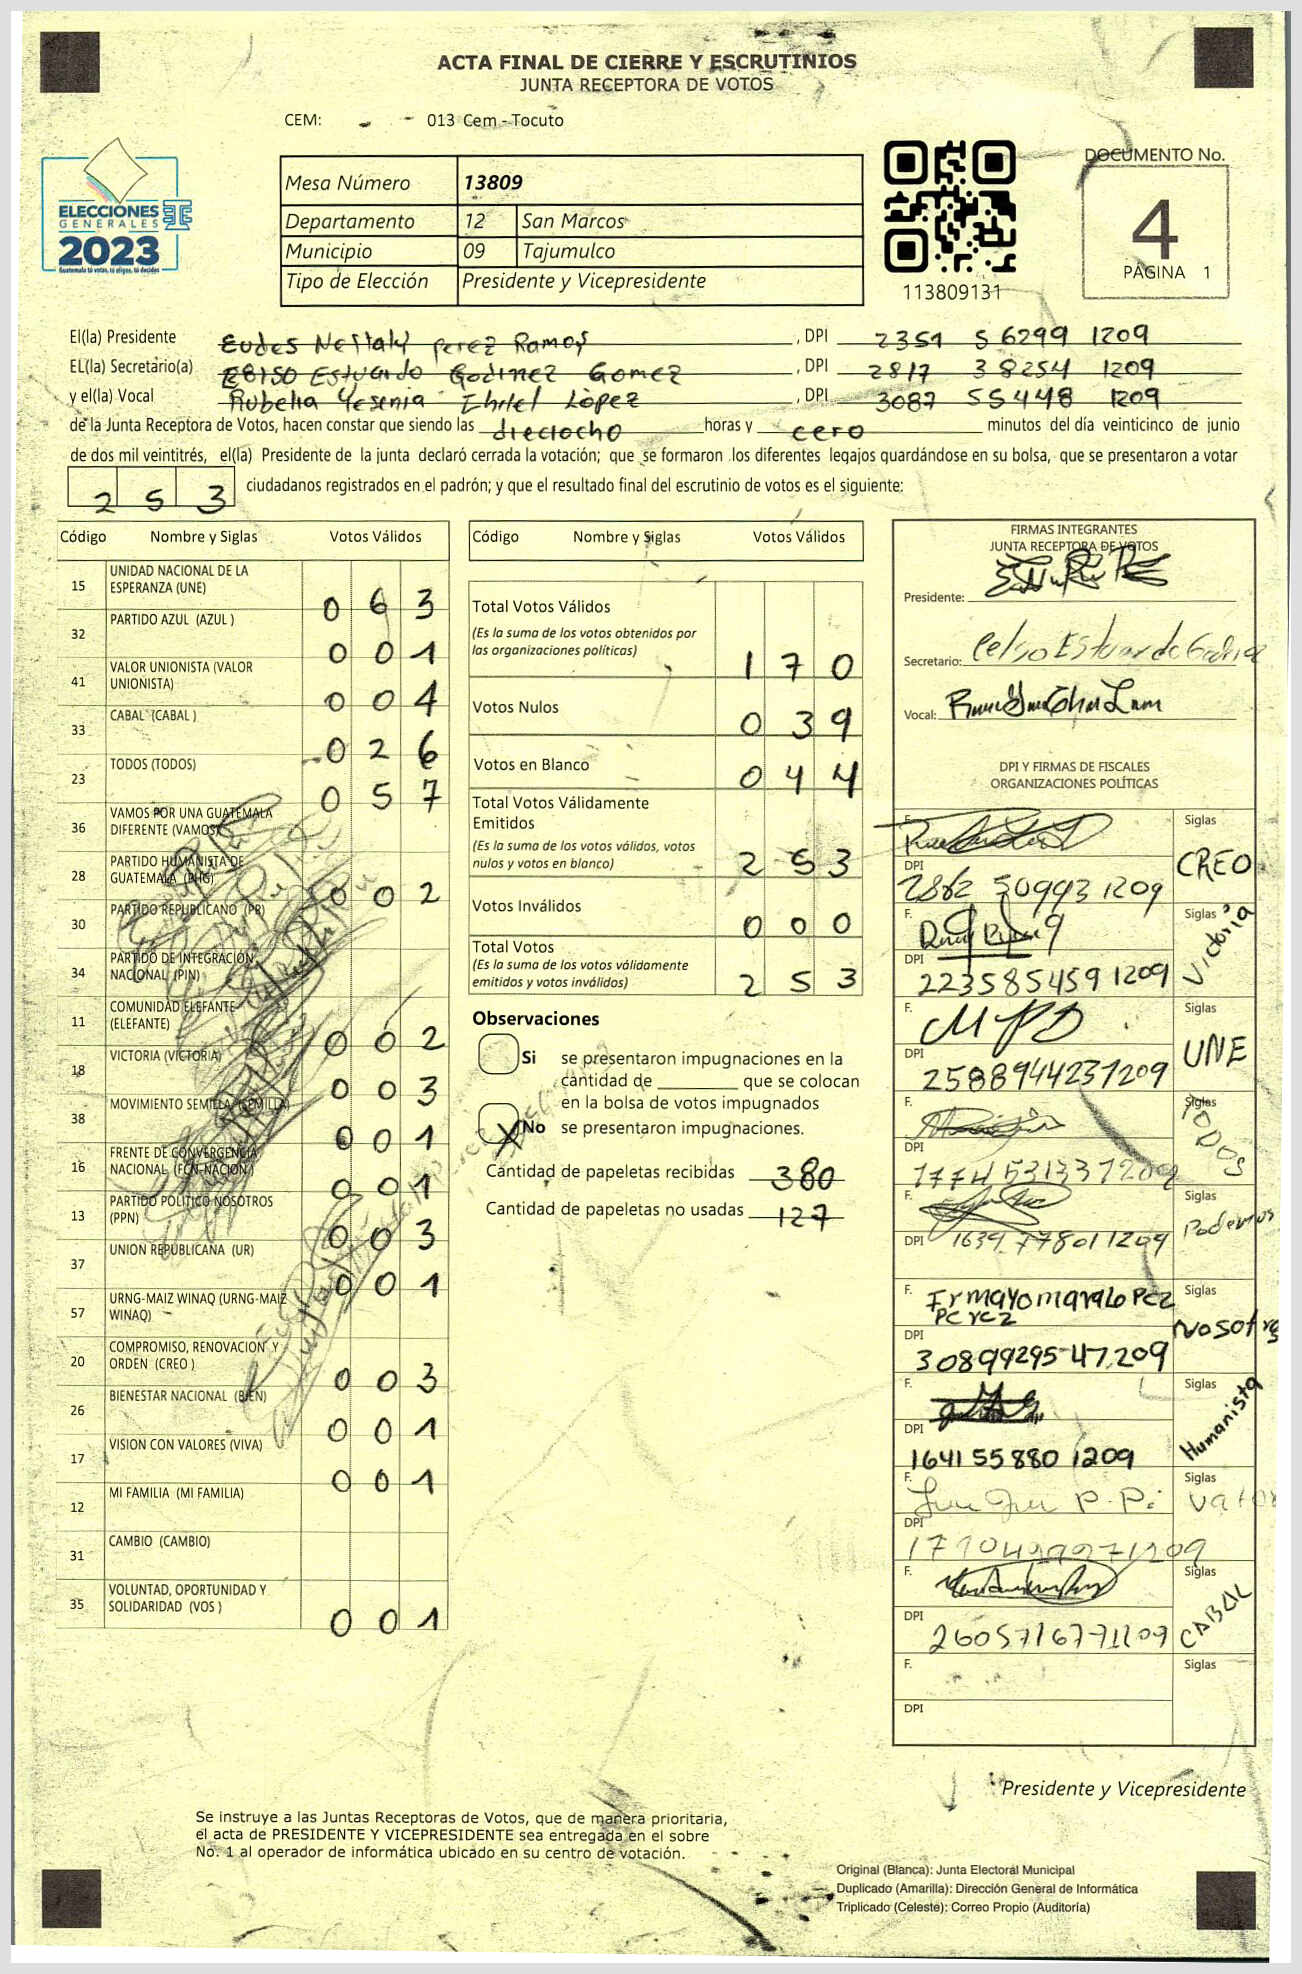 ACTA FINAL DE CIERRE Y ESCRUTINIOS
JUNTA RECEPTORA DE VOTOS
CEM: 013 Cem - Tocuto
ELECCIONES
GENERALES
2023
Guatemala tú votas, tú eliges, tú decides
Mesa Número 13809
Departamento 12 San Marcos
Municipio 09 Tajumulco
Tipo de Elección Presidente y Vicepresidente
113809131
DOCUMENTO No.
4
PÁGINA 1
El(la) Presidente Eudes Neftaly perez Ramos, DPI 2351 56299 1209
EL(la) Secretario(a) Estuardo Godinez Gomez, DPI 2817 38254 1209
y el(la) Vocal Rubelia Yesenia López, DPI 3087 55448 1209
de la Junta Receptora de Votos, hacen constar que siendo las dieciocho horas y cero minutos del día veinticinco de junio
de dos mil veintitrés, el(la) Presidente de la junta declaró cerrada la votación; que se formaron los diferentes legajos guardándose en su bolsa, que se presentaron a votar
2 5 3 ciudadanos registrados en el padrón; y que el resultado final del escrutinio de votos es el siguiente:
Código Nombre y Siglas Votos Válidos
15 UNIDAD NACIONAL DE LA ESPERANZA (UNE) 0 6 3
32 PARTIDO AZUL (AZUL ) 0 0 1
41 VALOR UNIONISTA (VALOR UNIONISTA) 0 0 4
33 CABAL (CABAL ) 0 2 6
23 TODOS (TODOS) 0 5 7
36 VAMOS POR UNA GUATEMALA DIFERENTE (VAMOS)
28 PARTIDO HUMANISTA DE GUATEMALA (PHG) 0 0 2
30 PARTIDO REPUBLICANO (PR)
34 PARTIDO DE INTEGRACIÓN NACIONAL (PIN)
11 COMUNIDAD ELEFANTE (ELEFANTE) 0 0 2
18 VICTORIA (VICTORIA) 0 0 3
38 MOVIMIENTO SEMILLA (SEMILLA) 0 0 1
16 FRENTE DE CONVERGENCIA NACIONAL (FCN-NACION) 0 0 1
13 PARTIDO POLITICO NOSOTROS (PPN) 0 0 3
37 UNION REPUBLICANA (UR) 0 0 1
57 URNG-MAIZ WINAQ (URNG-MAIZ WINAQ)
20 COMPROMISO, RENOVACION Y ORDEN (CREO ) 0 0 3
26 BIENESTAR NACIONAL (BIEN) 0 0 1
17 VISION CON VALORES (VIVA) 0 0 1
12 MI FAMILIA (MI FAMILIA)
31 CAMBIO (CAMBIO)
35 VOLUNTAD, OPORTUNIDAD Y SOLIDARIDAD (VOS ) 0 0 1
Código Nombre y Siglas Votos Válidos
Total Votos Válidos
(Es la suma de los votos obtenidos por
las organizaciones políticas) 1 7 0
Votos Nulos 0 3 9
Votos en Blanco 0 4 4
Total Votos Válidamente
Emitidos
(Es la suma de los votos válidos, votos
nulos y votos en blanco) 2 5 3
Votos Inválidos 0 0 0
Total Votos
(Es la suma de los votos válidamente
emitidos y votos inválidos) 2 5 3
Observaciones
Si se presentaron impugnaciones en la
cantidad de ________ que se colocan
en la bolsa de votos impugnados
X No se presentaron impugnaciones.
Cantidad de papeletas recibidas 380
Cantidad de papeletas no usadas 127
FIRMAS INTEGRANTES
JUNTA RECEPTORA DE VOTOS
Presidente:
Secretario:
Vocal:
DPI Y FIRMAS DE FISCALES
ORGANIZACIONES POLÍTICAS
F. Siglas CREO
DPI 2862 50993 1209
F. Siglas Victoria
DPI 223585459 1209
F. Siglas UNE
DPI 2588944231209
F. Siglas TODOS
DPI 1774531331209
F. Siglas Podemos
DPI 1639778011209
F. Irma yomara LoPez Perez Siglas Nosotros
DPI 3089929547209
F. Siglas Humanista
DPI 1641 55880 1209
F. Siglas Valor
DPI
F. Siglas CABAL
DPI
F. Siglas
DPI
Presidente y Vicepresidente
Se instruye a las Juntas Receptoras de Votos, que de manera prioritaria,
el acta de PRESIDENTE Y VICEPRESIDENTE sea entregada en el sobre
No. 1 al operador de informática ubicado en su centro de votación.
Original (Blanca): Junta Electoral Municipal
Duplicado (Amarilla): Dirección General de Informática
Triplicado (Celeste): Correo Propio (Auditoría)